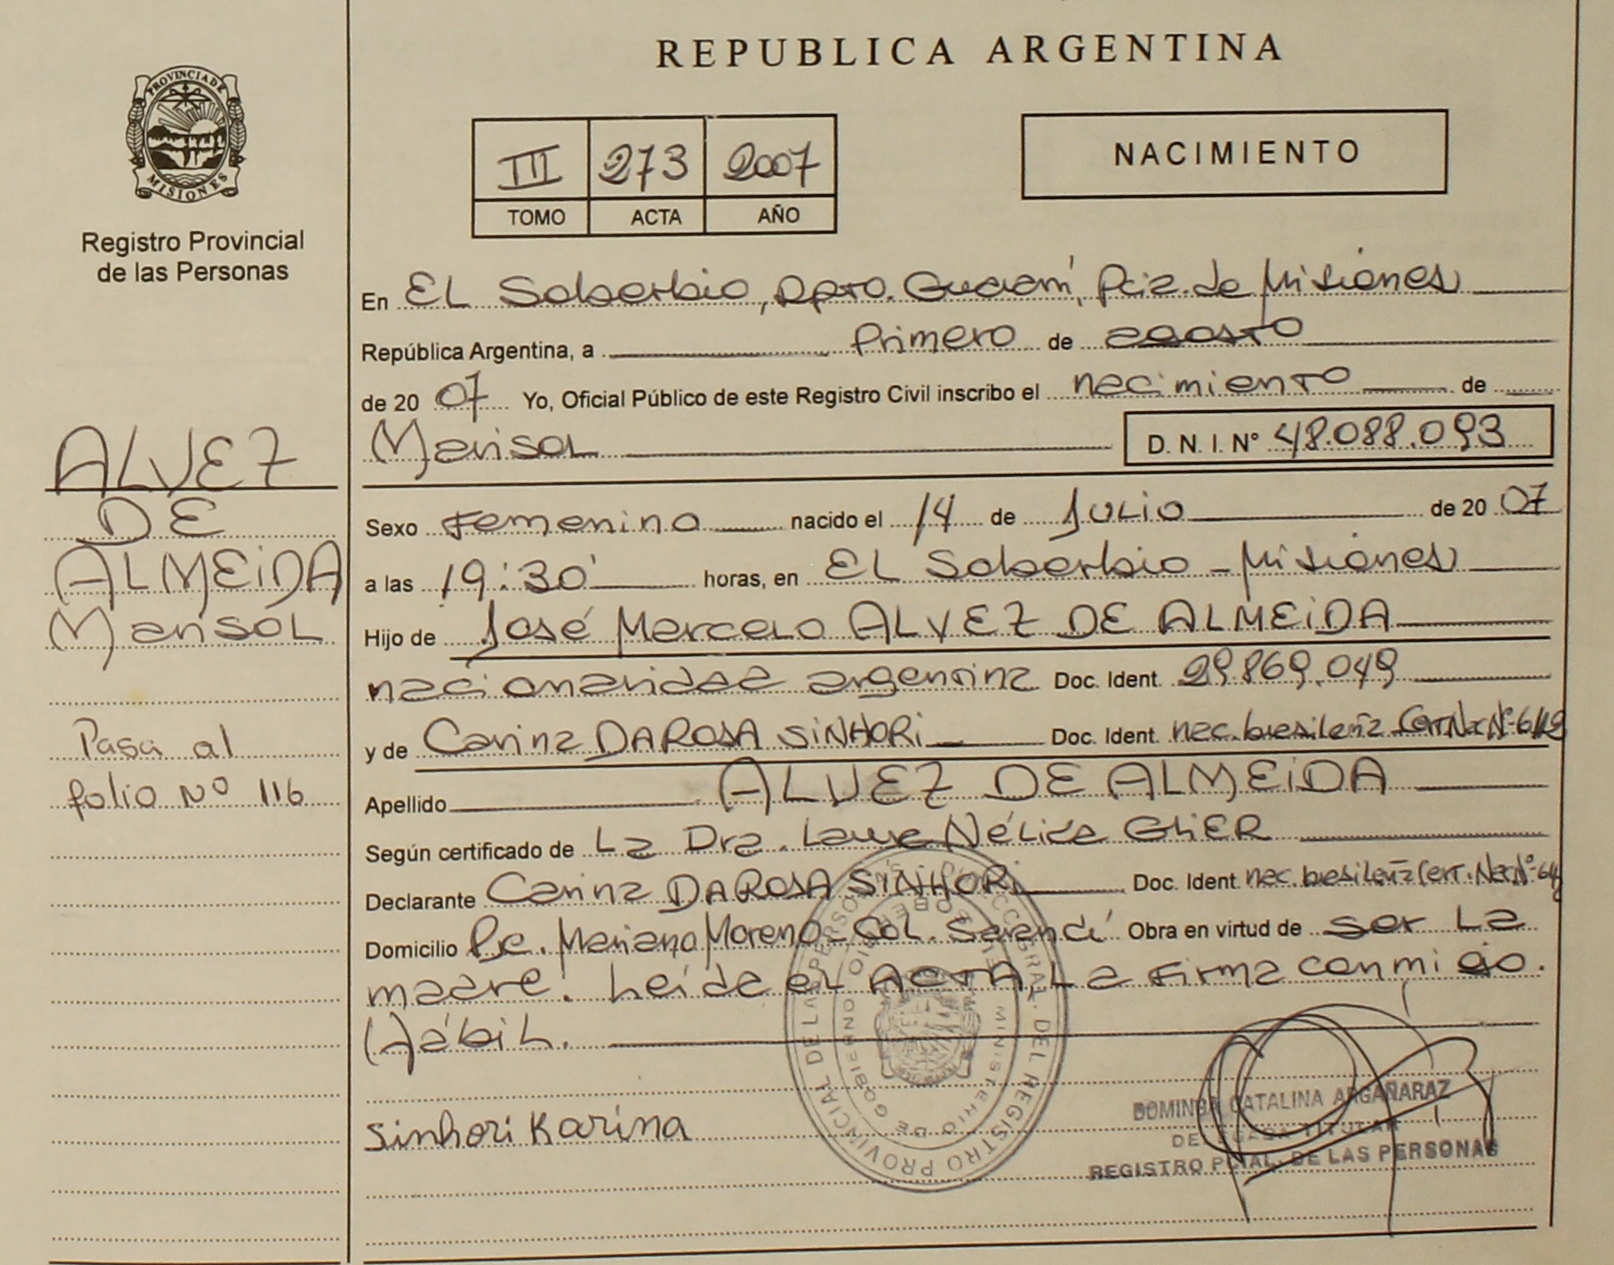 REPUBLICA ARGENTINA
PROVINCIA DE MISIONES
Registro Provincial
de las Personas
III 273 2007
TOMO ACTA AÑO
NACIMIENTO
En EL Soberbio, Dpto. Guaraní, Pcia. de Misiones
República Argentina, a Primero de agosto
de 2007 Yo, Oficial Público de este Registro Civil inscribo el nacimiento de
Marisol D. N. I. Nº 48.088.093
ALVEZ
DE
ALMEiDA
Marisol
Pasa al
folio Nº 116
Sexo Femenino nacido el 14 de Julio de 2007
a las 19:30' horas, en EL Soberbio - Misiones
Hijo de José Marcelo ALVEZ DE ALMEiDA
nacionalidad argentina Doc. Ident. 29.869.049
y de Carina DA ROSA SiNHORi Doc. Ident. nac. brasileña Cert. Nac. Nº
Apellido ALVEZ DE ALMEiDA
Según certificado de La Dra. Laura Nélida GLIER
Declarante Carina DA ROSA SiNHORi Doc. Ident nac. brasileña Cert. Nac. Nº
Domicilio Pje. Mariano Moreno - Col. Sarandí Obra en virtud de ser La
madre. Leída el ACTA, La Firma conmigo.
Hábil.
Sinhori Karina
DIRECC. GRAL. DEL REGISTRO PROVINCIAL DE LAS PERSONAS
MINISTERIO DE GOBIERNO
EL SOBERBIO
DOMINGA CATALINA ARGAÑARAZ
DELEGADA TITULAR
REGISTRO PCIAL. DE LAS PERSONAS